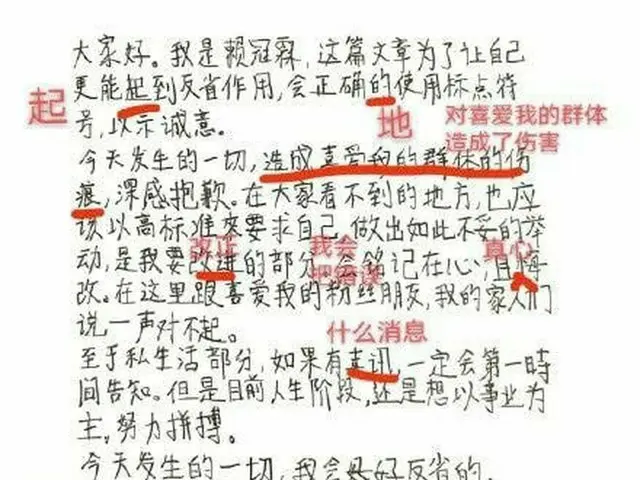 大家好。我是赖冠霖,这篇文章为了让自己
更能起到反省作用,会正确的使用标点符
起
地
对喜爱我的群体
造成了伤害
号,以示诚意。
今天发生的一切,造成喜爱我的群体的伤
痕,深感抱歉。在大家看不到的地方,也应
该以高标准来要求自己 做出如此不妥的举
改正
我会
把错误
真心
动,是我要改进的部分 会铭记在心,且悔
改。在这里跟喜爱我的粉丝朋友,我的家人们
说一声对不起。
什么消息
至于私生活部分,如果有喜讯,一定会第一時
间告知。但是目前人生阶段,还是想以事业为
主,努力拼搏。
今天发生的一切,我会好好反省的。